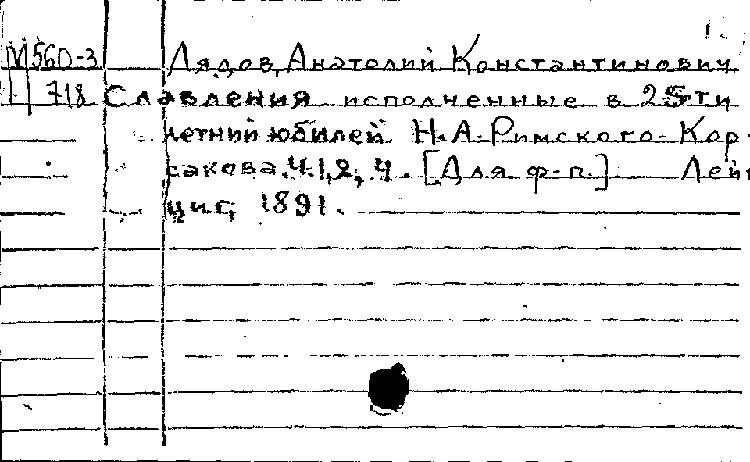 М560-3 Лядов, Анатолий Константинович
718 Славления исполненные в 25ти
летний юбилей Н.А. Римского-Кор-
сакова. Ч.1,2,4. [Для ф-п.] Лейп
циг, 1891.